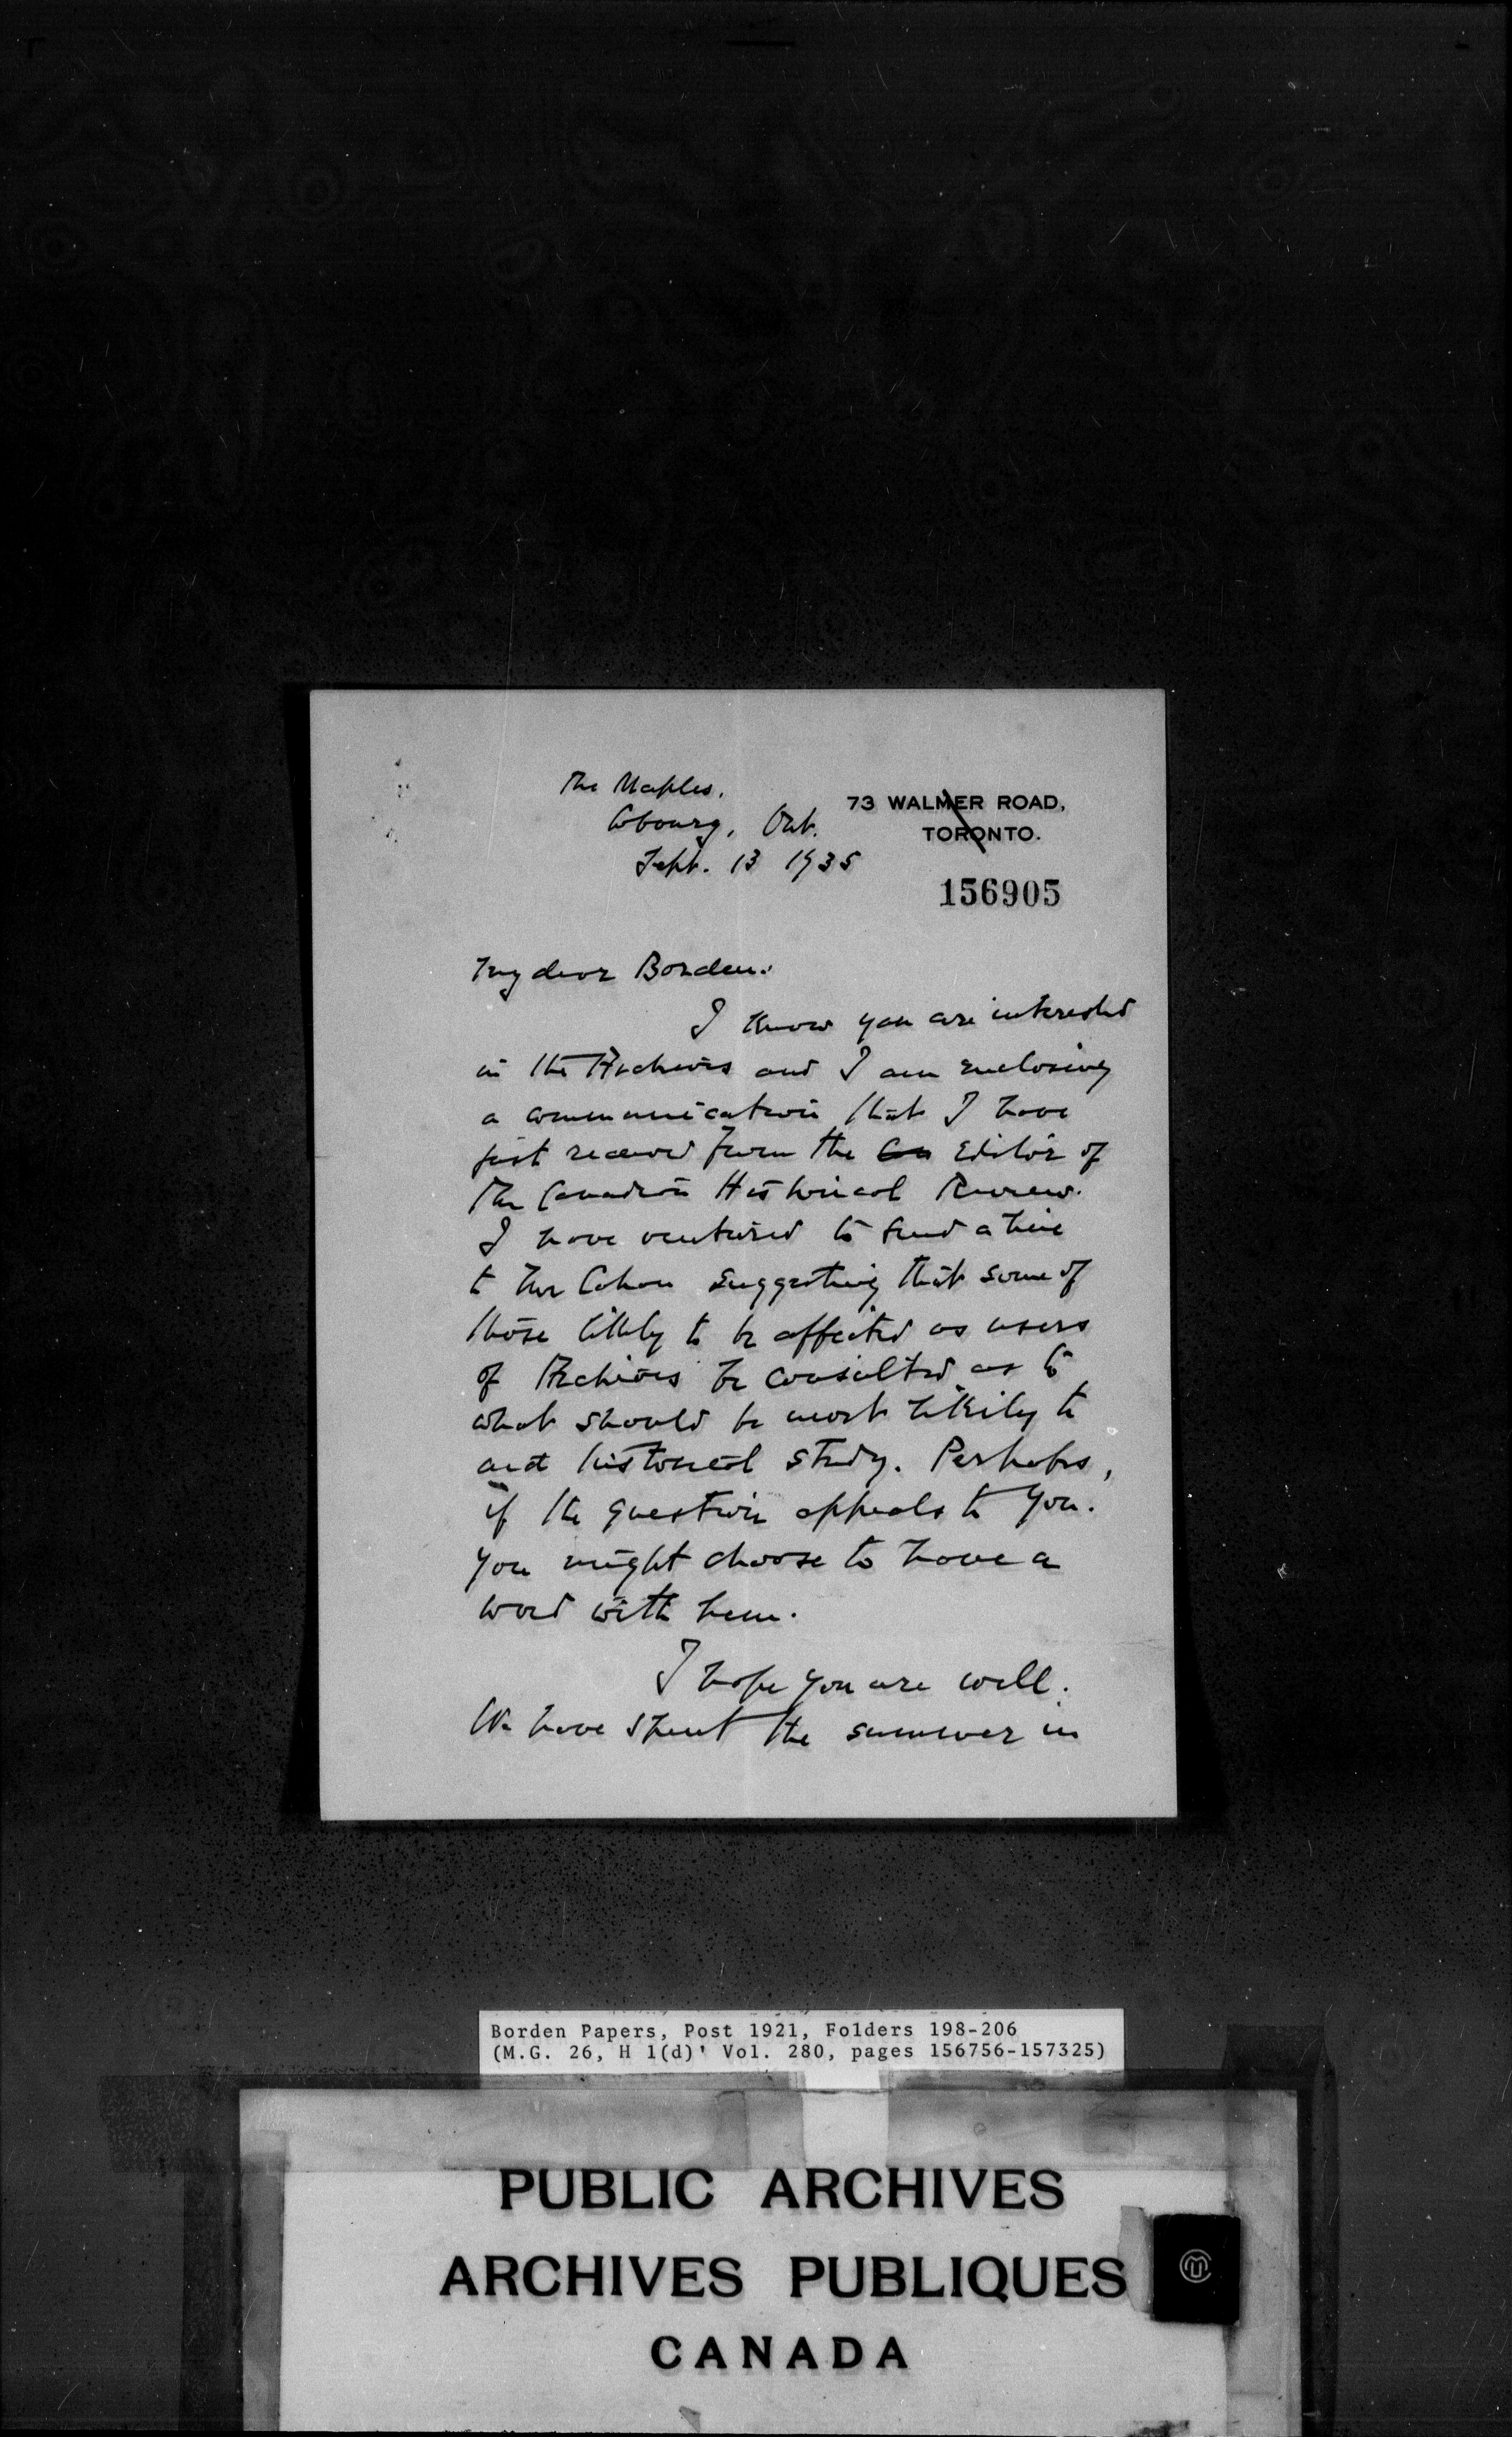 The Maples,
Cobourg, Ont.
Sept. 13 1935
73 WALMER ROAD,
TORONTO.
156905
My dear Borden:
I know you are interested
in the Archives and I am enclosing
a communication that I have
just received from the Editor of
the Canadian Historical Review.
I have ventured to send a line
to Mr Cahan suggesting that some of
those likely to be affected as users
of Archives be consulted as to
what should be most likely to
aid historical study. Perhaps,
if the question appeals to you.
you might choose to have a
word with him.
I hope you are well.
We have spent the summer in
Borden Papers, Post 1921, Folders 198-206
(M.G. 26, H 1(d)' Vol. 280, pages 156756-157325)
PUBLIC ARCHIVES
ARCHIVES PUBLIQUES
CANADA